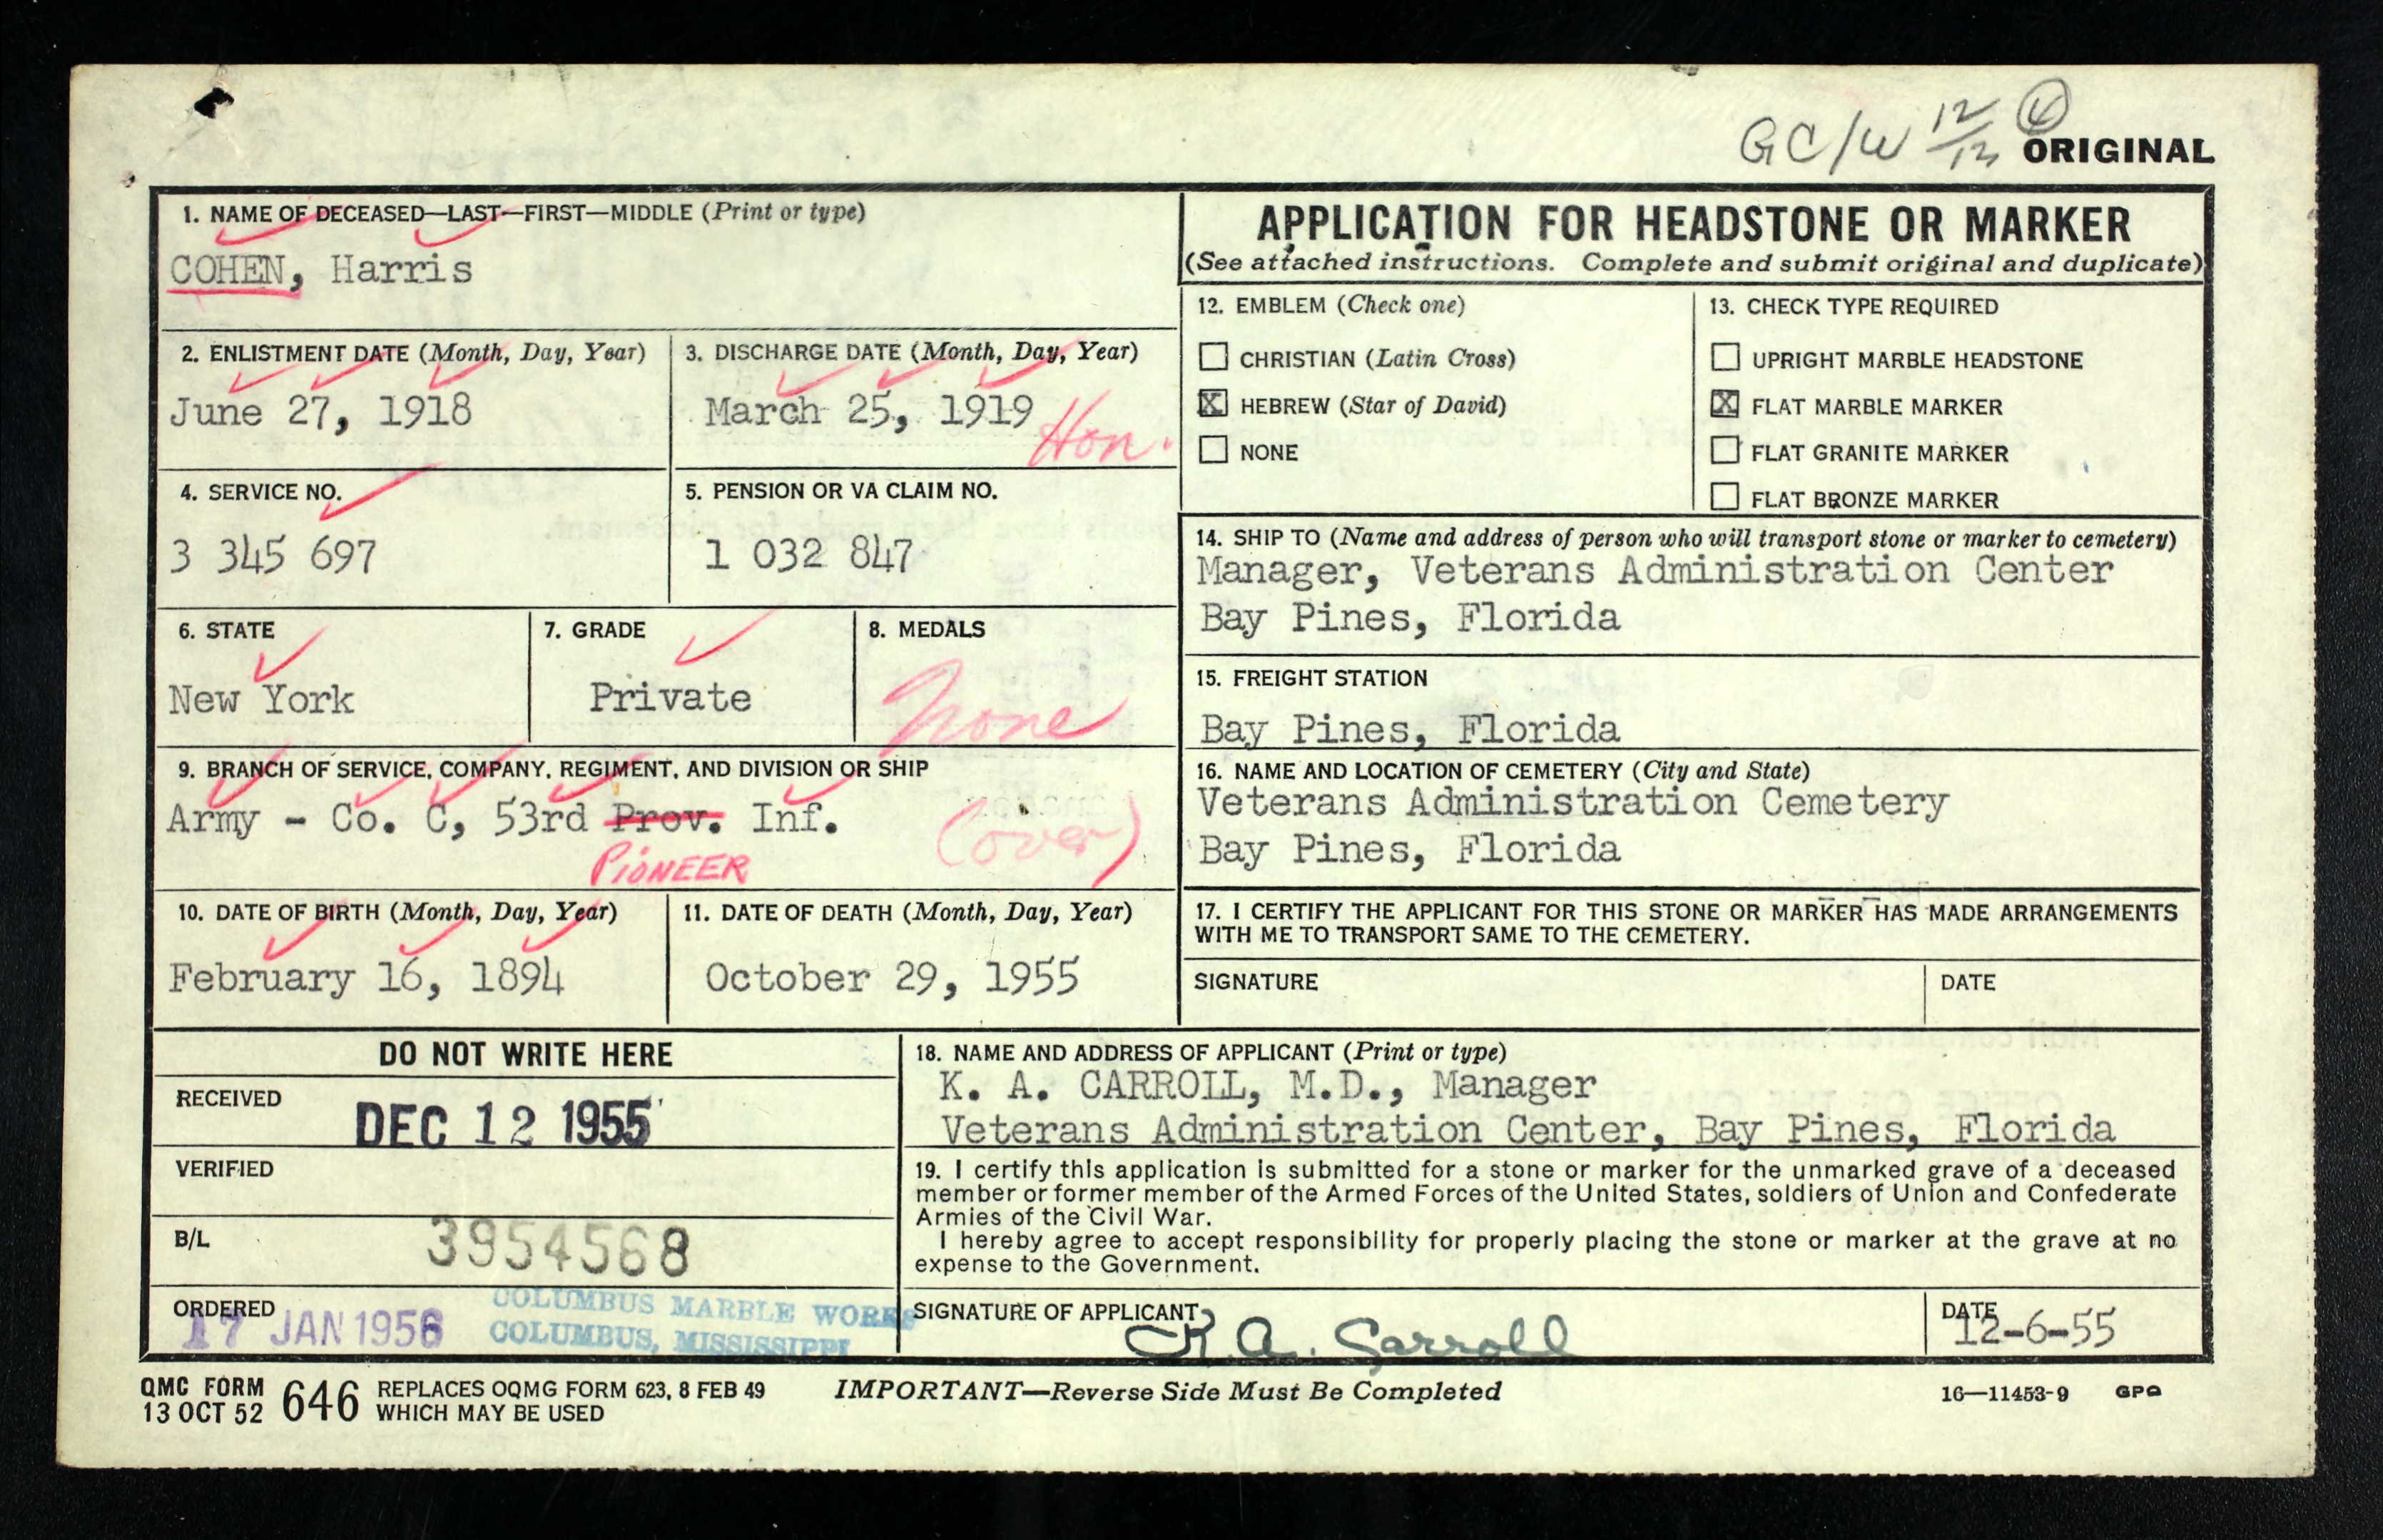 GC/W 12/12 4
ORIGINAL
1. NAME OF DECEASED—LAST—FIRST—MIDDLE (Print or type)
COHEN, Harris
2. ENLISTMENT DATE (Month, Day, Year)
June 27, 1918
3. DISCHARGE DATE (Month, Day, Year)
March 25, 1919 Hon.
4. SERVICE NO.
3 345 697
5. PENSION OR VA CLAIM NO.
1 032 847
6. STATE
New York
7. GRADE
Private
8. MEDALS
None
9. BRANCH OF SERVICE, COMPANY, REGIMENT, AND DIVISION OR SHIP
Army - Co. C, 53rd Prov. Inf.
PIONEER
(over)
10. DATE OF BIRTH (Month, Day, Year)
February 16, 1894
11. DATE OF DEATH (Month, Day, Year)
October 29, 1955
APPLICATION FOR HEADSTONE OR MARKER
(See attached instructions. Complete and submit original and duplicate)
12. EMBLEM (Check one)
CHRISTIAN (Latin Cross)
X HEBREW (Star of David)
NONE
13. CHECK TYPE REQUIRED
UPRIGHT MARBLE HEADSTONE
X FLAT MARBLE MARKER
FLAT GRANITE MARKER
FLAT BRONZE MARKER
14. SHIP TO (Name and address of person who will transport stone or marker to cemetery)
Manager, Veterans Administration Center
Bay Pines, Florida
15. FREIGHT STATION
Bay Pines, Florida
16. NAME AND LOCATION OF CEMETERY (City and State)
Veterans Administration Cemetery
Bay Pines, Florida
17. I CERTIFY THE APPLICANT FOR THIS STONE OR MARKER HAS MADE ARRANGEMENTS
WITH ME TO TRANSPORT SAME TO THE CEMETERY.
SIGNATURE
DATE
DO NOT WRITE HERE
RECEIVED
DEC 12 1955
VERIFIED
B/L
3954568
ORDERED
17 JAN 1956
COLUMBUS MARBLE WORKS
COLUMBUS, MISSISSIPPI
18. NAME AND ADDRESS OF APPLICANT (Print or type)
K. A. CARROLL, M.D., Manager
Veterans Administration Center, Bay Pines, Florida
19. I certify this application is submitted for a stone or marker for the unmarked grave of a deceased
member or former member of the Armed Forces of the United States, soldiers of Union and Confederate
Armies of the Civil War.
I hereby agree to accept responsibility for properly placing the stone or marker at the grave at no
expense to the Government.
SIGNATURE OF APPLICANT
K. A. Carroll
DATE
12-6-55
QMC FORM
13 OCT 52
646
REPLACES OQMG FORM 623, 8 FEB 49
WHICH MAY BE USED
IMPORTANT—Reverse Side Must Be Completed
16—11453-9 GPO